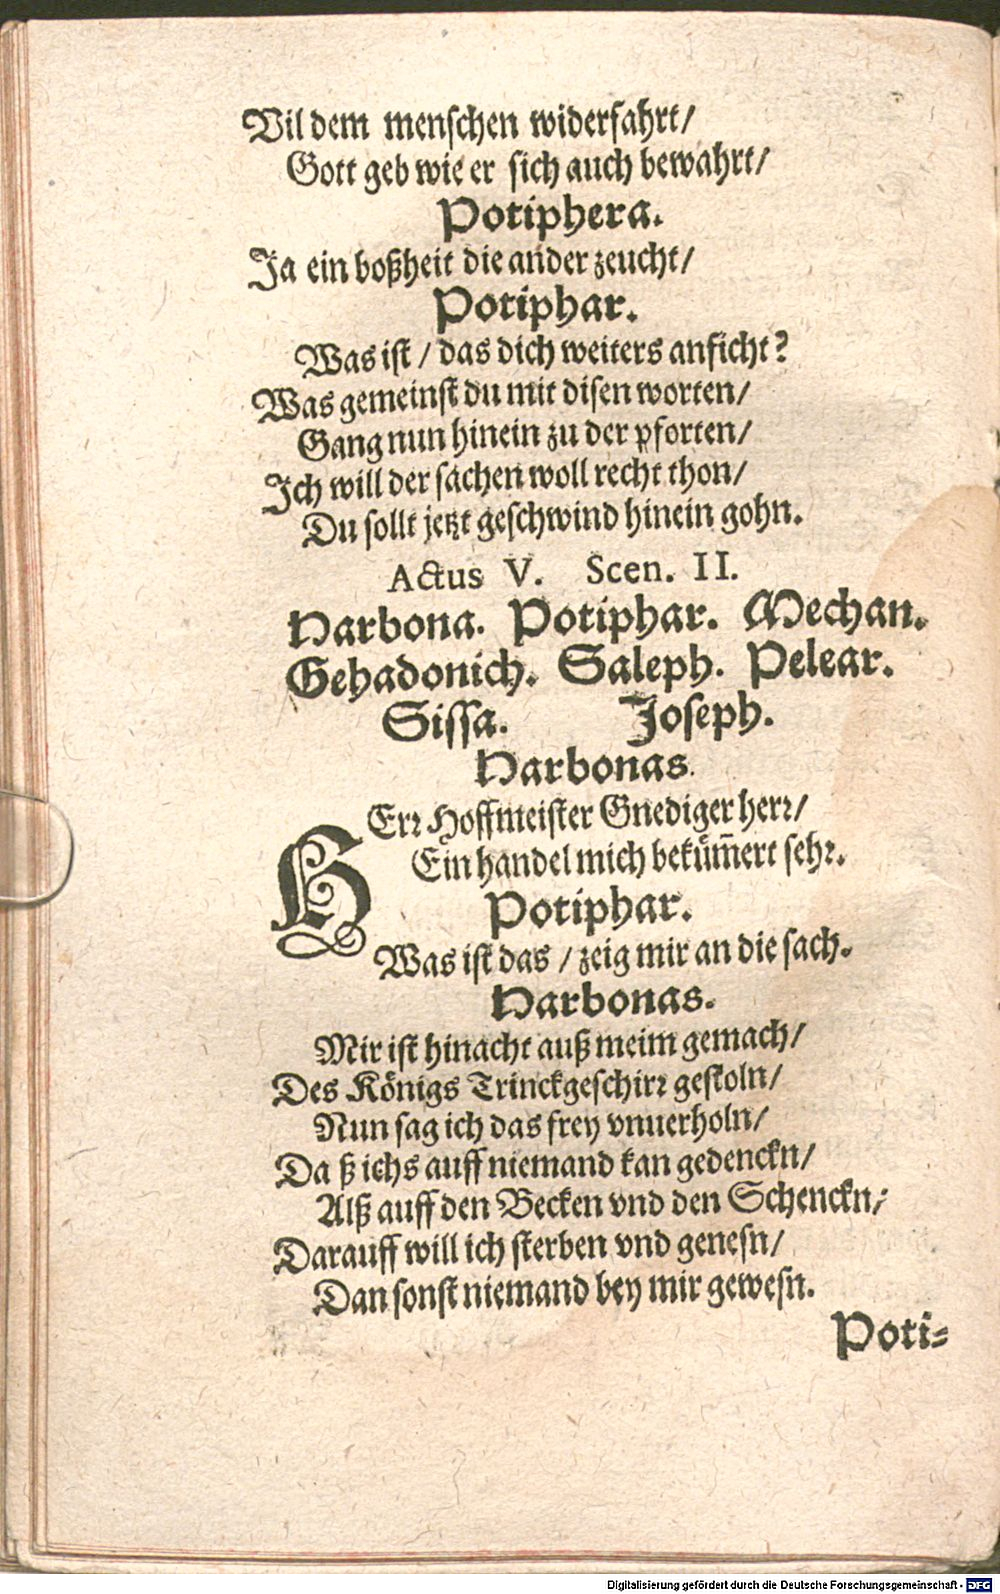 Vil dem menschen widerfahrt/
Gott geb wie er sich auch bewahrt/
Potiphera.
Ja ein boßheit die ander zeucht/
Potiphar.
Was ist / das dich weiters anficht?
Was gemeinst du mit disen worten/
Gang nun hinein zu der pforten/
Ich will der sachen woll recht thon/
Du sollt jetzt geschwind hinein gohn.
Actus V. Scen. II.
Narbona. Potiphar. Mechan.
Gehadonich. Saleph. Pelear.
Sissa. Joseph.
Narbonas.
HErr Hoffmeister Gnediger herr/
Ein handel mich bekům̃ert sehr.
Potiphar.
Was ist das / zeig mir an die sach.
Narbonas.
Mir ist hinacht auß meim gemach/
Des Königs Trinckgeschirr gestoln/
Nun sag ich das frey vnuerholn/
Da ß ichs auff niemand kan gedenckn/
Alß auff den Becken vnd den Schenckn/
Darauff will ich sterben vnd genesn/
Dan sonst niemand bey mir gewesn.
Poti-
Digitalisierung gefördert durch die Deutsche Forschungsgemeinschaft - DFG